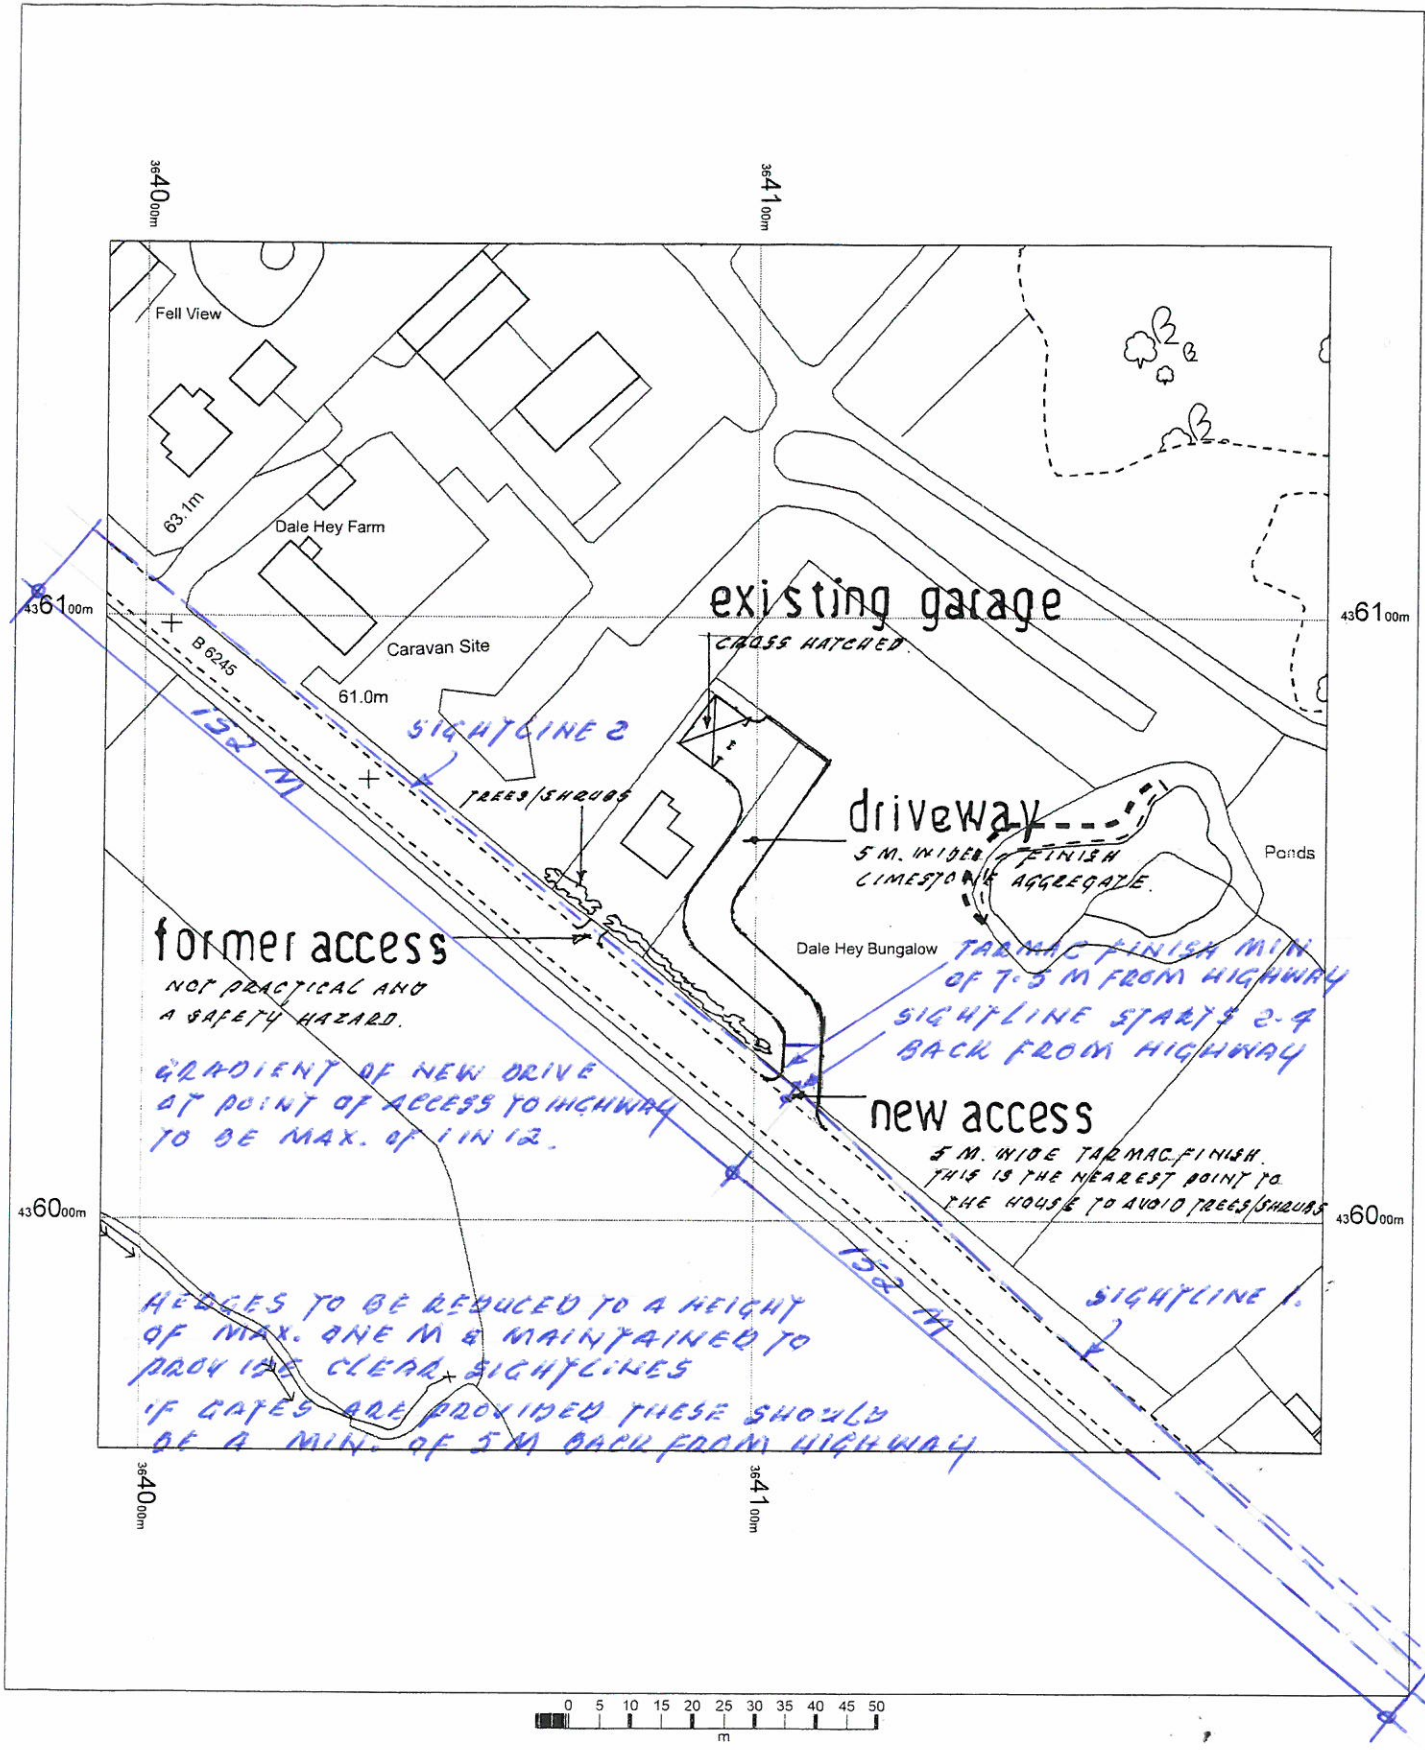 364000m
364100m
Fell View
63.1m
Dale Hey Farm
436100m
436100m
existing garage
CROSS HATCHED.
B 6245
Caravan Site
61.0m
152 M
SIGHTLINE 2
TREES/SHRUBS
driveway
5 M. WIDE FINISH
LIMESTONE AGGREGATE.
Ponds
former access
NOT PRACTICAL AND
A SAFETY HAZARD.
Dale Hey Bungalow
TARMAC FINISH MIN
OF 7.5 M FROM HIGHWAY
SIGHTLINE STARTS 2.4
BACK FROM HIGHWAY
GRADIENT OF NEW DRIVE
AT POINT OF ACCESS TO HIGHWAY
TO BE MAX. OF 1 IN 12.
new access
5 M. WIDE TARMAC FINISH.
THIS IS THE NEAREST POINT TO
THE HOUSE TO AVOID TREES/SHRUBS
436000m
436000m
152 M
SIGHTLINE 1.
HEDGES TO BE REDUCED TO A HEIGHT
OF MAX. ONE M & MAINTAINED TO
PROVIDE CLEAR SIGHTLINES
IF GATES ARE PROVIDED THESE SHOULD
BE A MIN. OF 5 M BACK FROM HIGHWAY
364000m
364100m
0 5 10 15 20 25 30 35 40 45 50
m